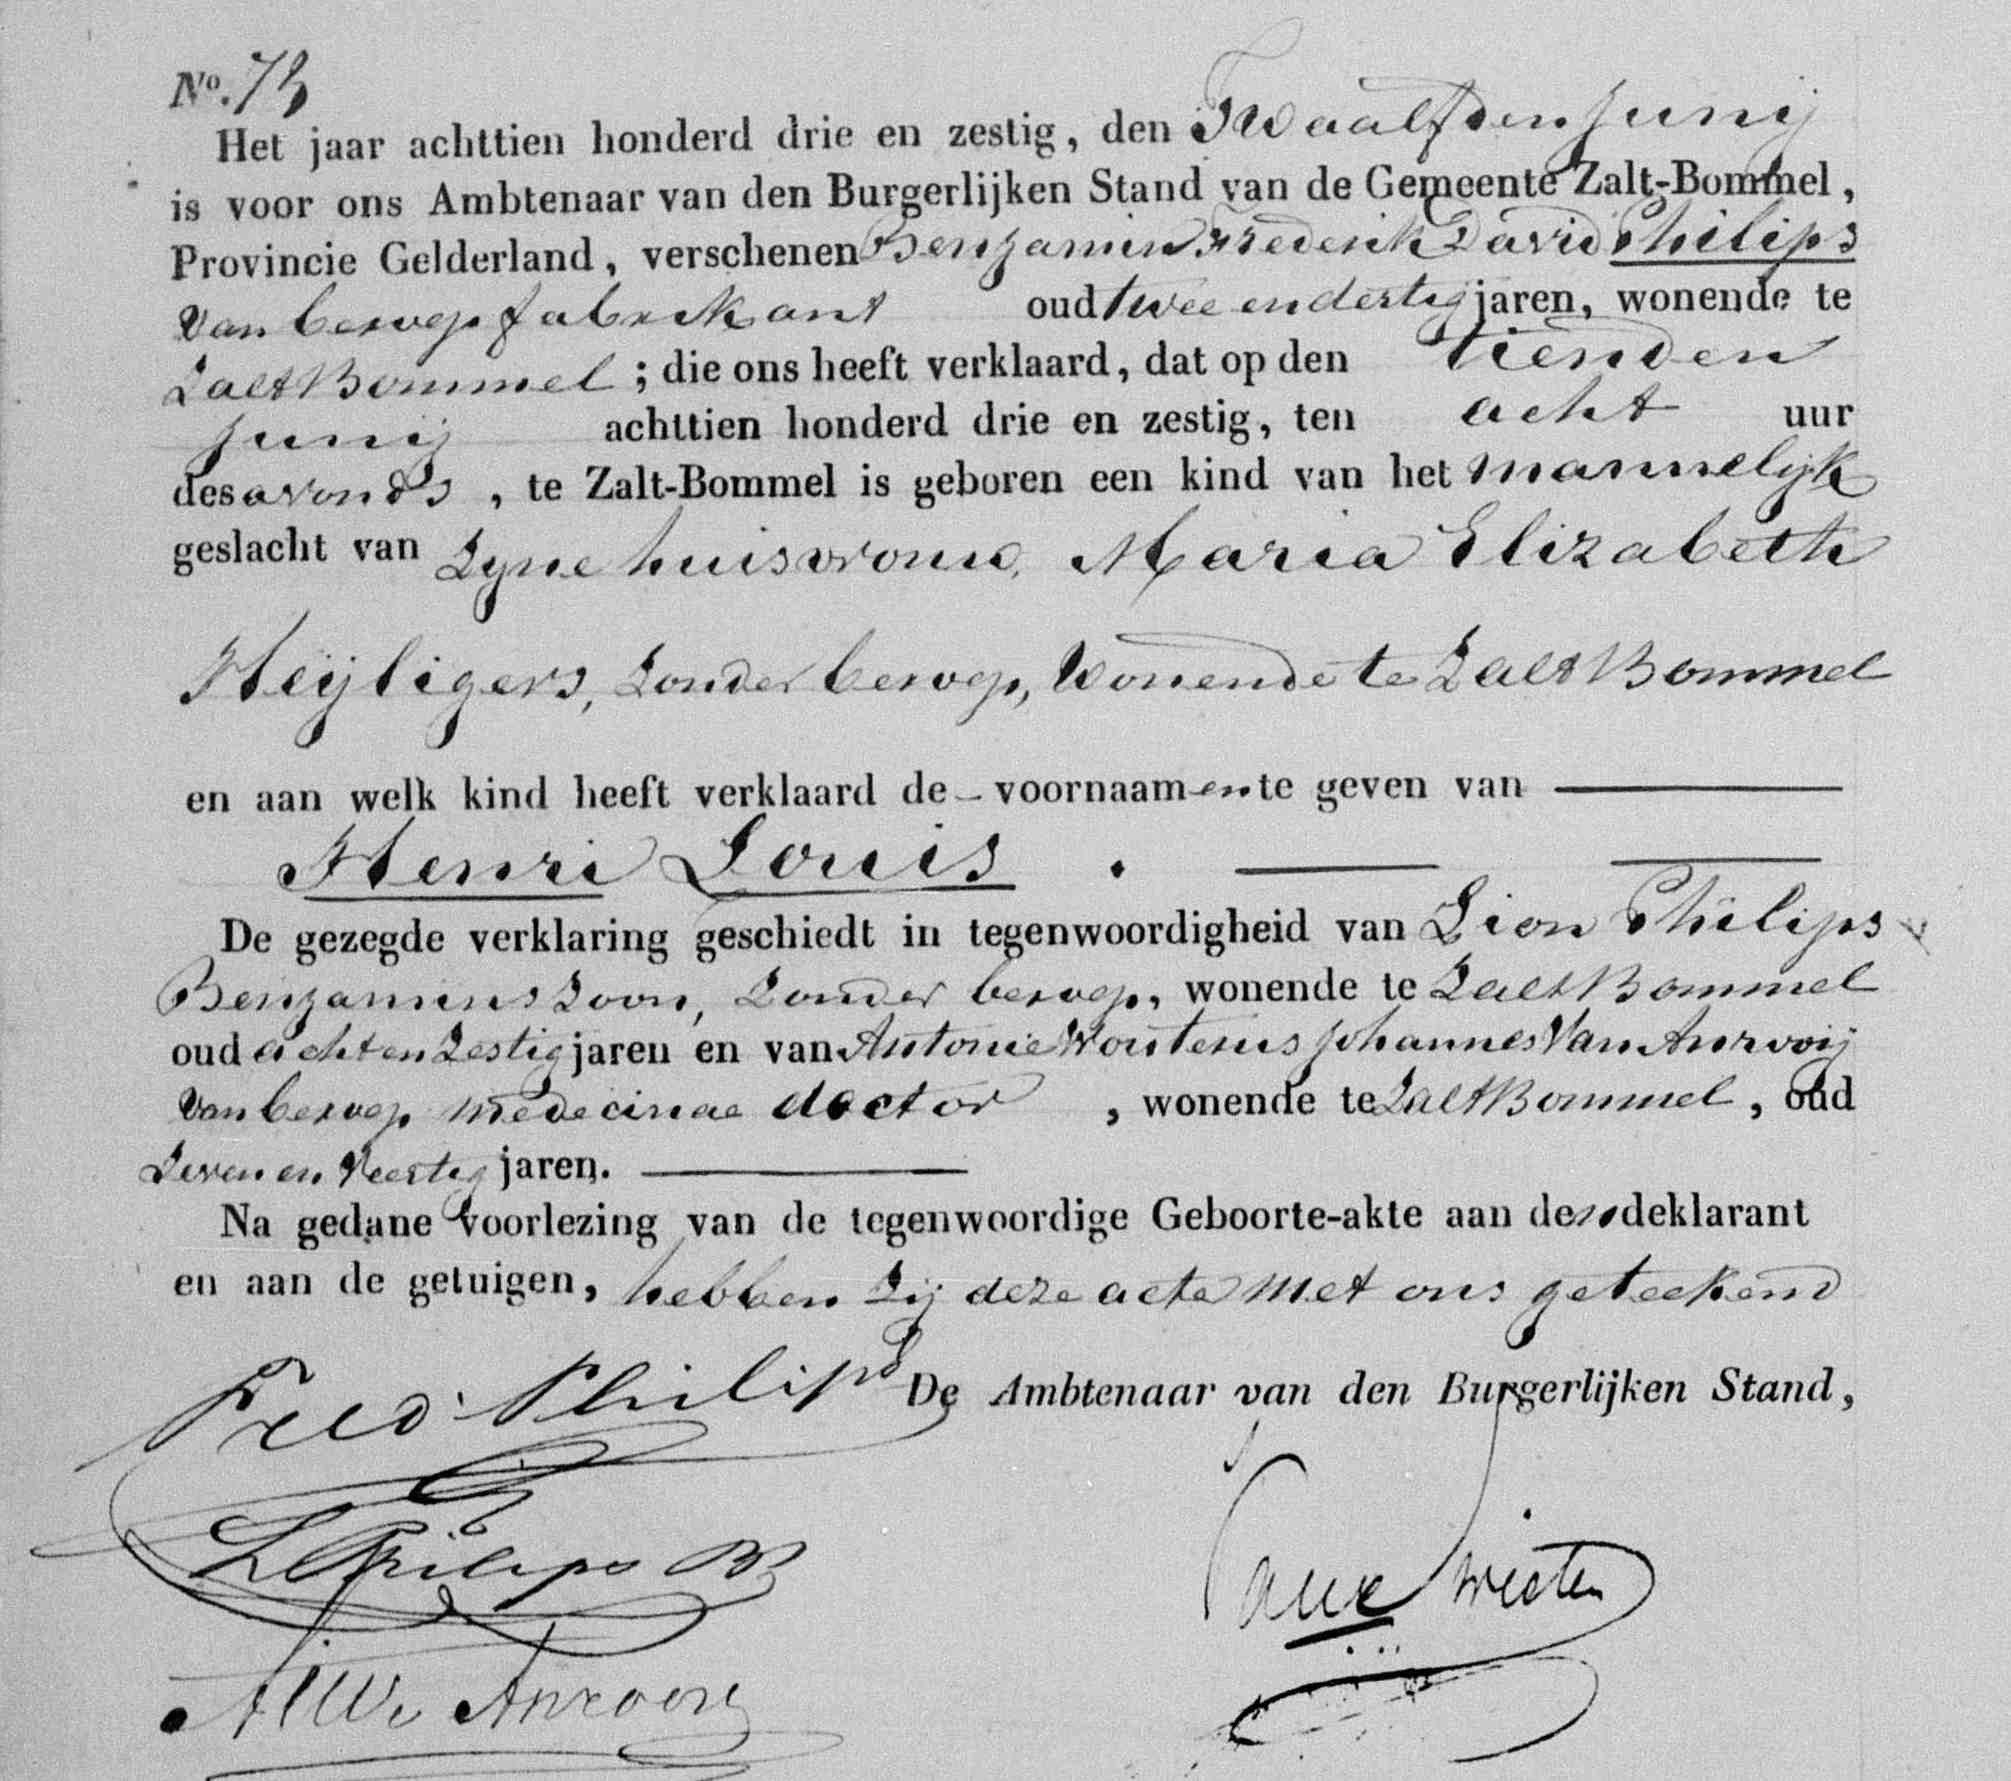 No. 73
Het jaar achttien honderd drie en zestig, den Twaalfden Junij
is voor ons Ambtenaar van den Burgerlijken Stand van de Gemeente Zalt-Bommel,
Provincie Gelderland, verschenen Benjamin Frederik David Philips
van beroep fabrikant oud twee en dertig jaren, wonende te
Zalt Bommel ; die ons heeft verklaard, dat op den tienden
Junij achttien honderd drie en zestig, ten acht uur
des avonds , te Zalt-Bommel is geboren een kind van het mannelijk
geslacht van Zyne huisvrouw, Maria Elizabeth
Heyligers, Zonder beroep, Wonende te Zalt Bommel
en aan welk kind heeft verklaard de voornaamen te geven van
Henri Louis .
De gezegde verklaring geschiedt in tegenwoordigheid van Lion Philips
Benjamins Zoon, Zonder beroep, wonende te Zalt Bommel
oud acht en Zestig jaren en van Antonie Wouterus Johannes Van Anrooij
van beroep medecinae doctor , wonende te Zalt Bommel , oud
Zeven en Veertig jaren.
Na gedane voorlezing van de tegenwoordige Geboorte-akte aan den deklarant
en aan de getuigen, hebben Zij deze acte met ons geteekend
Fred Philips De Ambtenaar van den Burgerlijken Stand,
L Philips Bz
Anrooy